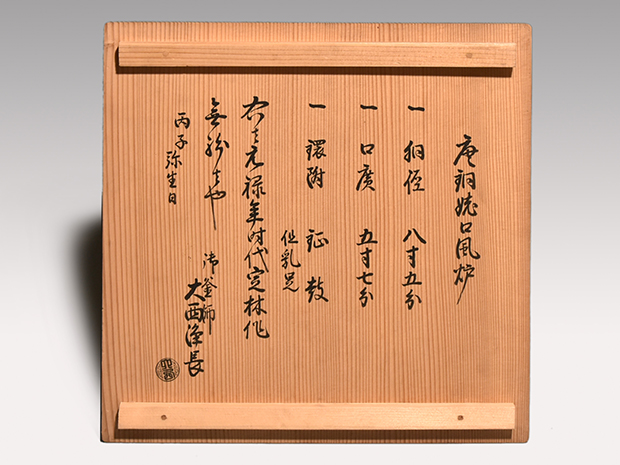 唐銅燒口風炉
一 胴径 八寸五分
一 口廣 五寸七分
一 鐶附 鉦鼓
但乳足
右之元禄年時代定林作
無紛もの也
丙子弥生日
御釜師
大西浄長